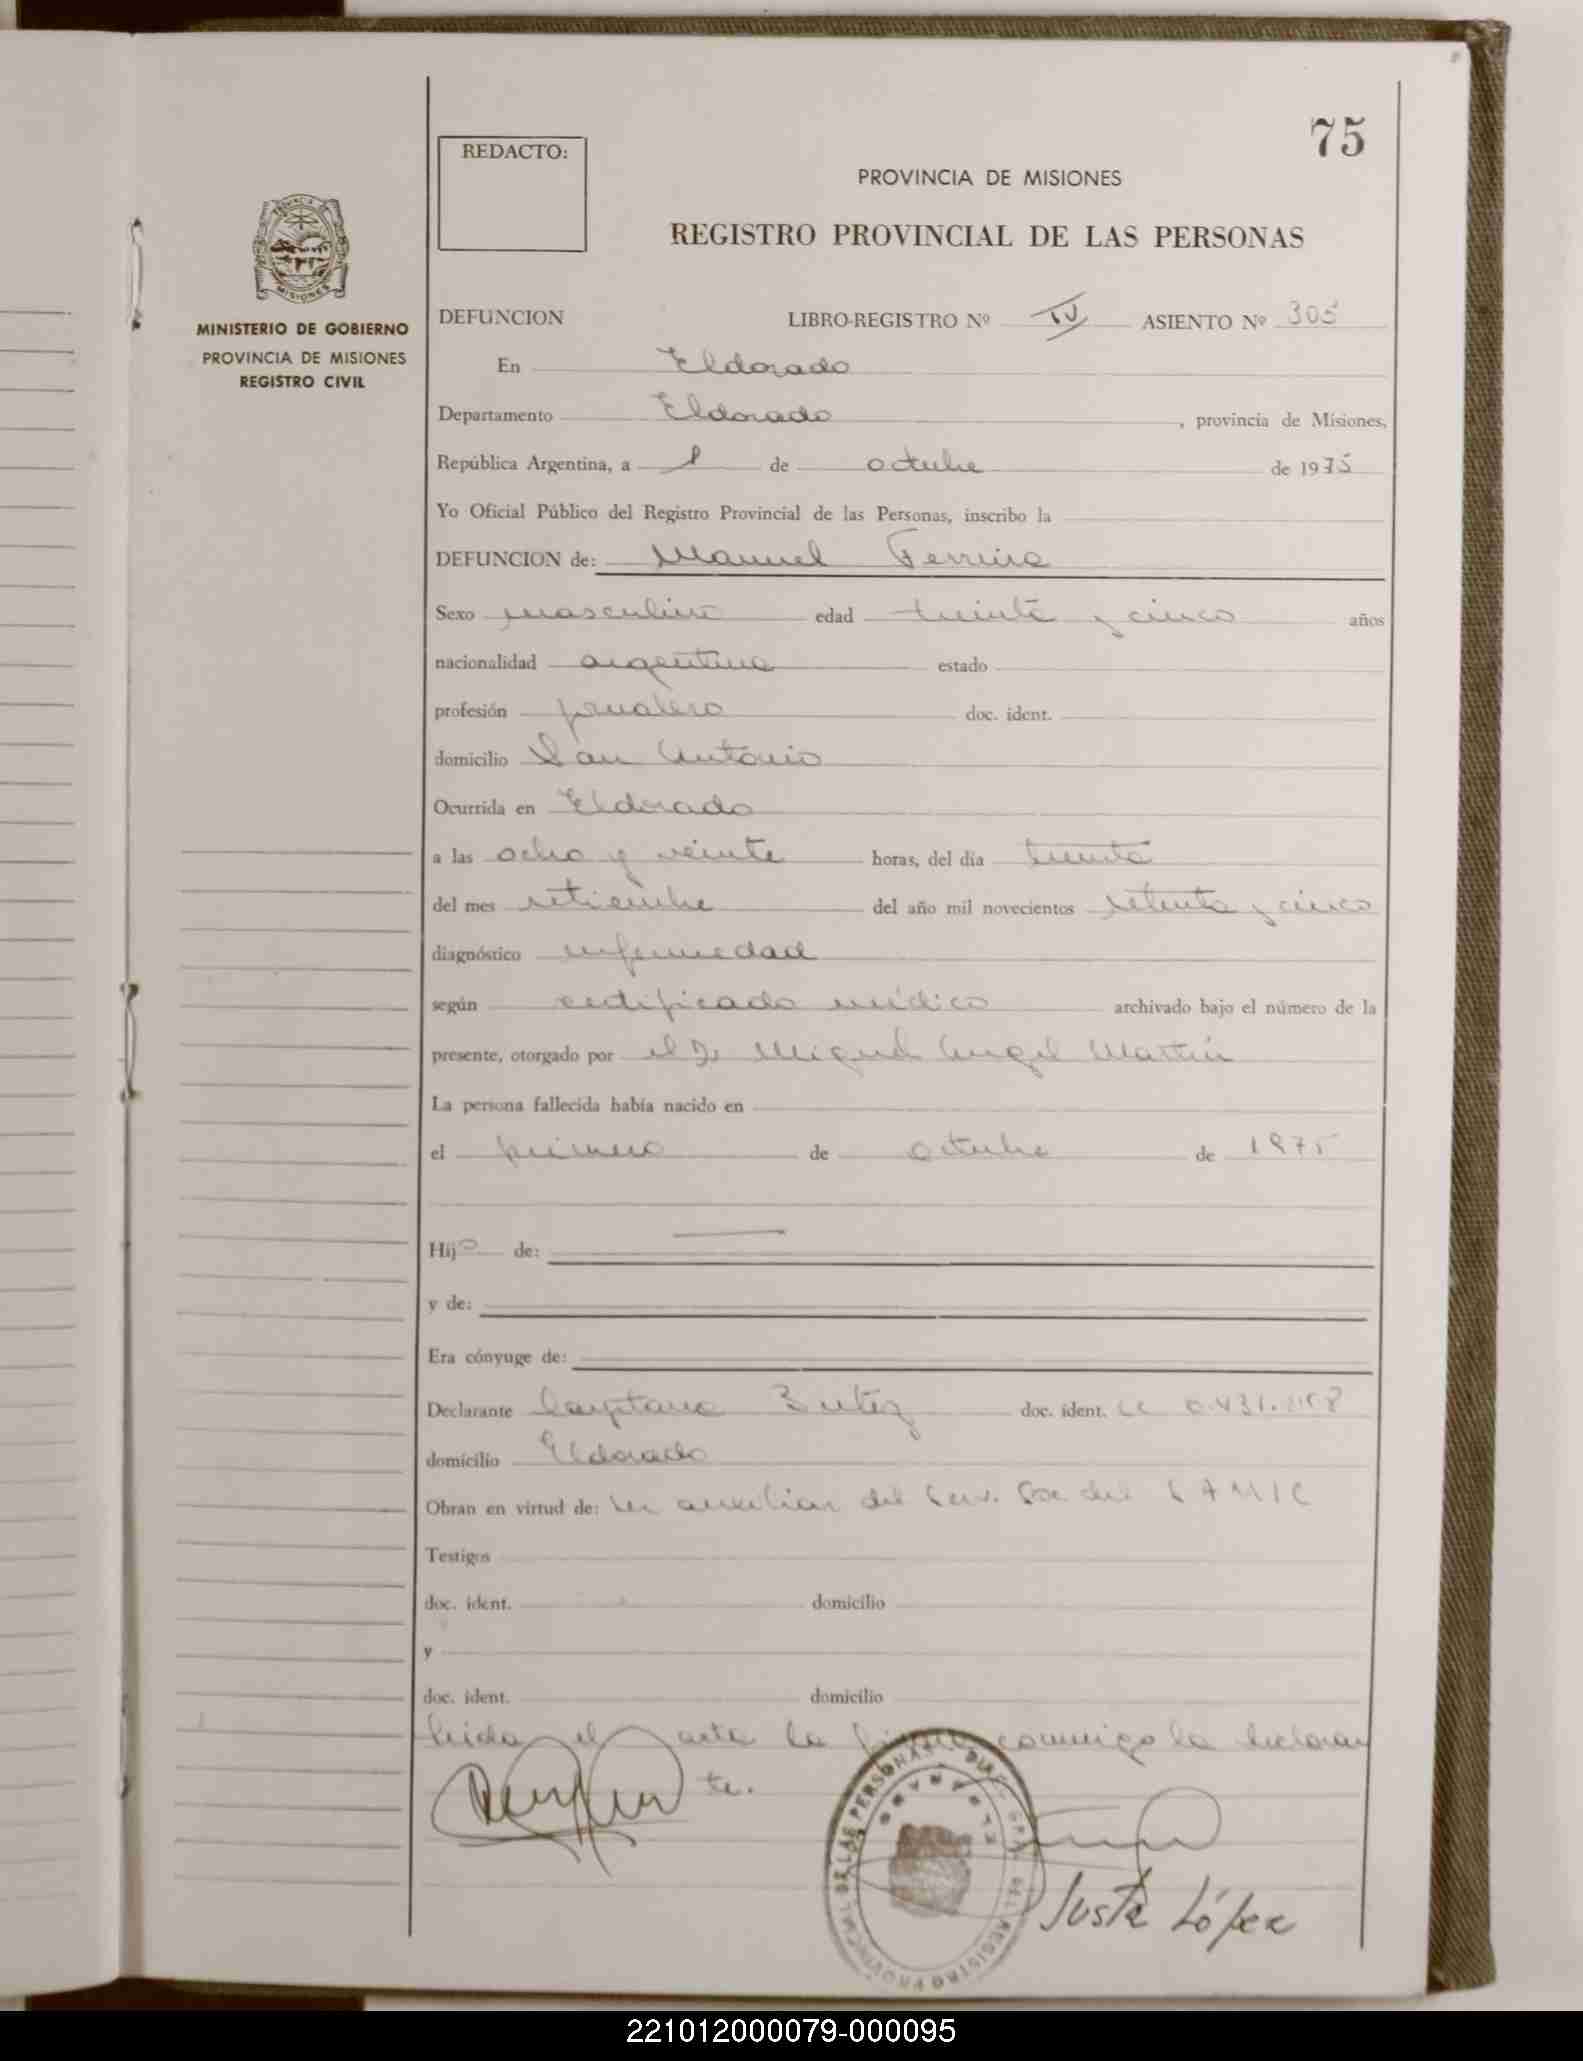 75
REDACTO:
PROVINCIA DE MISIONES
REGISTRO PROVINCIAL DE LAS PERSONAS
MINISTERIO DE GOBIERNO
PROVINCIA DE MISIONES
REGISTRO CIVIL
DEFUNCION LIBRO-REGISTRO Nº IV ASIENTO Nº 305
En Eldorado
Departamento Eldorado, provincia de Misiones,
República Argentina, a 1 de octubre de 1975
Yo Oficial Público del Registro Provincial de las Personas, inscribo la
DEFUNCION de: Manuel Ferreira
Sexo masculino edad treinta y cinco años
nacionalidad argentina estado
profesión jornalero doc. ident.
domicilio San Antonio
Ocurrida en Eldorado
a las ocho y veinte horas, del día treinta
del mes setiembre del año mil novecientos setenta y cinco
diagnóstico enfermedad
según certificado médico archivado bajo el número de la
presente, otorgado por el Dr Miguel Angel Martín
La persona fallecida había nacido en
el primero de octubre de 1975
Hijo de:
y de:
Era cónyuge de:
Declarante doc. ident.
domicilio Eldorado
Obran en virtud de: ser auxiliar del Serv. Soc. del SAMIC
Testigos
doc. ident. domicilio
y
doc. ident. domicilio
leida el acta la firma conmigo la declaran
te.
Justa López
221012000079-000095